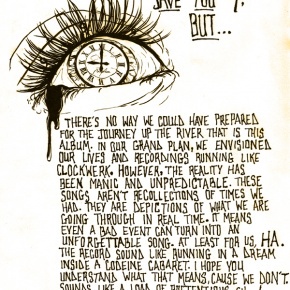 SAVE YOU
BUT...
THERE'S NO WAY WE COULD HAVE PREPARED
FOR THE JOURNEY UP THE RIVER THAT IS THIS
ALBUM. IN OUR GRAND PLAN, WE ENVISIONED
OUR LIVES AND RECORDINGS RUNNING LIKE
CLOCKWERK. HOWEVER, THE REALITY HAS
BEEN MANIC AND UNPREDICTABLE. THESE
SONGS AREN'T RECOLLECTIONS OF TIMES WE
HAD. THEY ARE DEPICTIONS OF WHAT WE ARE
GOING THROUGH IN REAL TIME. IT MEANS
EVEN A BAD EVENT CAN TURN INTO AN
UNFORGETTABLE SONG. AT LEAST FOR US, HA.
THE RECORD SOUND LIKE RUNNING IN A DREAM
INSIDE A CODEINE CABARET. I HOPE YOU
UNDERSTAND WHAT THAT MEANS, CAUSE WE DON'T.
SOUNDS LIKE A LOAD OF PRETENTIOUS